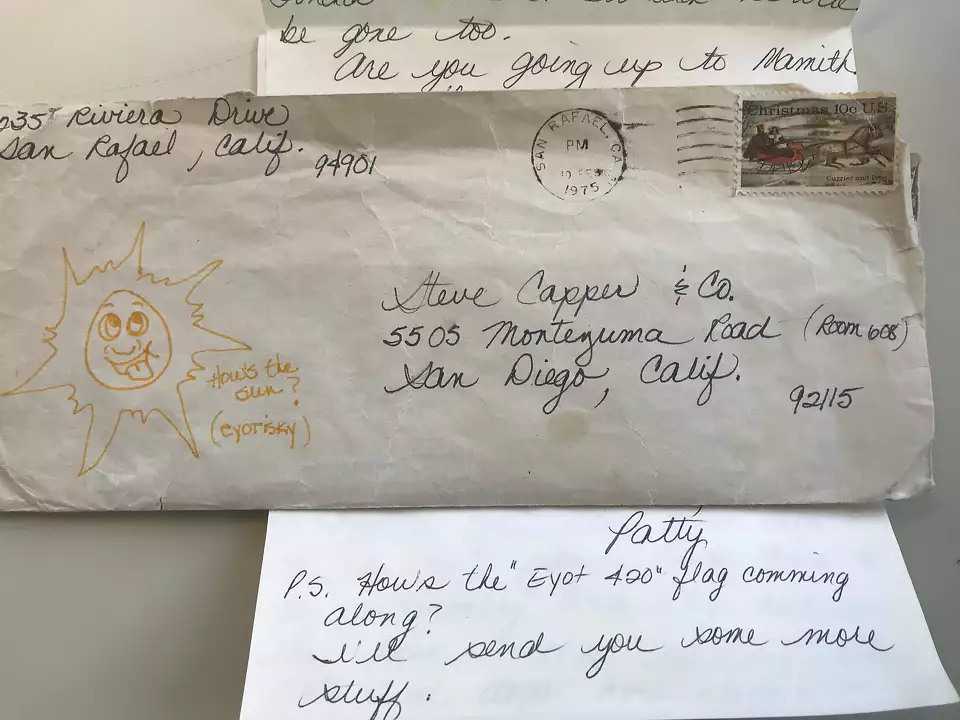 be gone too.
Are you going up to Mamith
235 Riviera Drive
San Rafael, Calif.
94901
SAN RAFAEL, CA
PM
1975
Christmas 10c U.S.
Currier and Ives
Steve Capper & Co.
5505 Montezuma Road (Room 608)
San Diego, Calif.
92115
How's the
sun?
(eyotisky)
Patty
P.S. How's the "Eyot 420" flag comming
along?
i'll send you some more
stuff.